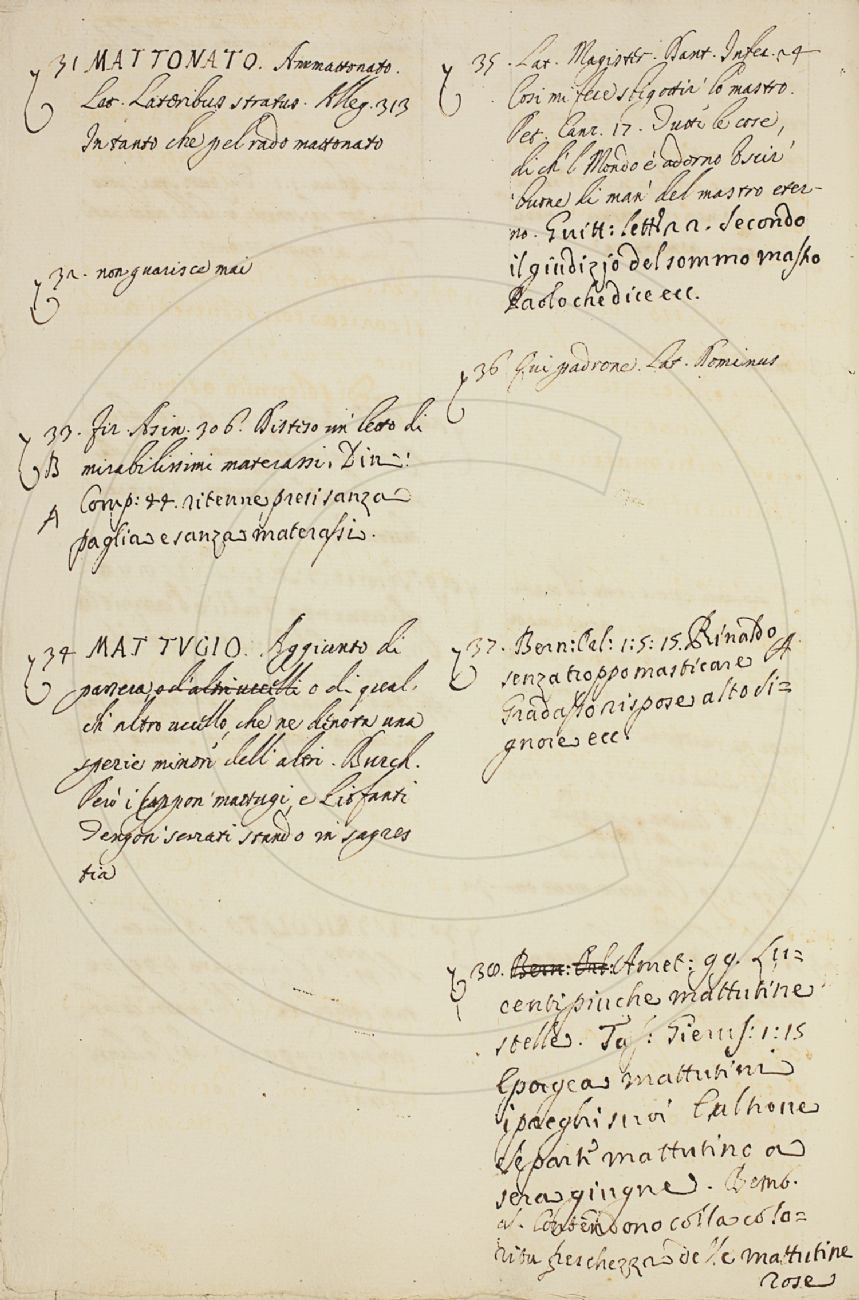 31 MATTONATO. Ammattonato.
Lat. Lateribus stratus. Alleg. 313
Intanto che pel rado mattonato
32. non guarisce mai
33. fir. Asin. 306. Disteso un' letto di
B mirabilissimi materassi. Din:
A Comp: 44. ritenne presi sanza
paglia e sanza materassi.
34 MATTUGIO. Aggiunto di
passera, o d'altri uccelli o di qual.
ch' altro uccello, che ne dinota una
spezie minor' dell' altri. Burch.
Però i Cappon' mattugi, e Liofanti
Tengon' serrati stando in sagres
tia
35. Lat. Magister. Dant. Infer. 24
Così mi fece sbigottir' lo mastro.
Pet. Canz. 17. Tutte le cose,
di ch' l Mondo è adorno Uscir'
buone di man' del mastro eter-
no. Guitt: lett. 22. Secondo
il giudizio del sommo mastro
Paolo che dice ecc.
36 Qui padrone. Lat. Dominus
37. Bern: Orl: 1:5:15. Rinaldo A
senza troppo masticare
Gradasso rispose alto si=
gnore ecc.
38. Bern: Orl: Amet: 99. Lu=
centi piu che mattutine
stelle. Tass: Gierus: 1:15
E porgea mattutini
i preghi suoi
e se parte mattutino a
sera giugne. Bemb.
as. Contendono colla colo=
rita freschezza delle mattutine
rose